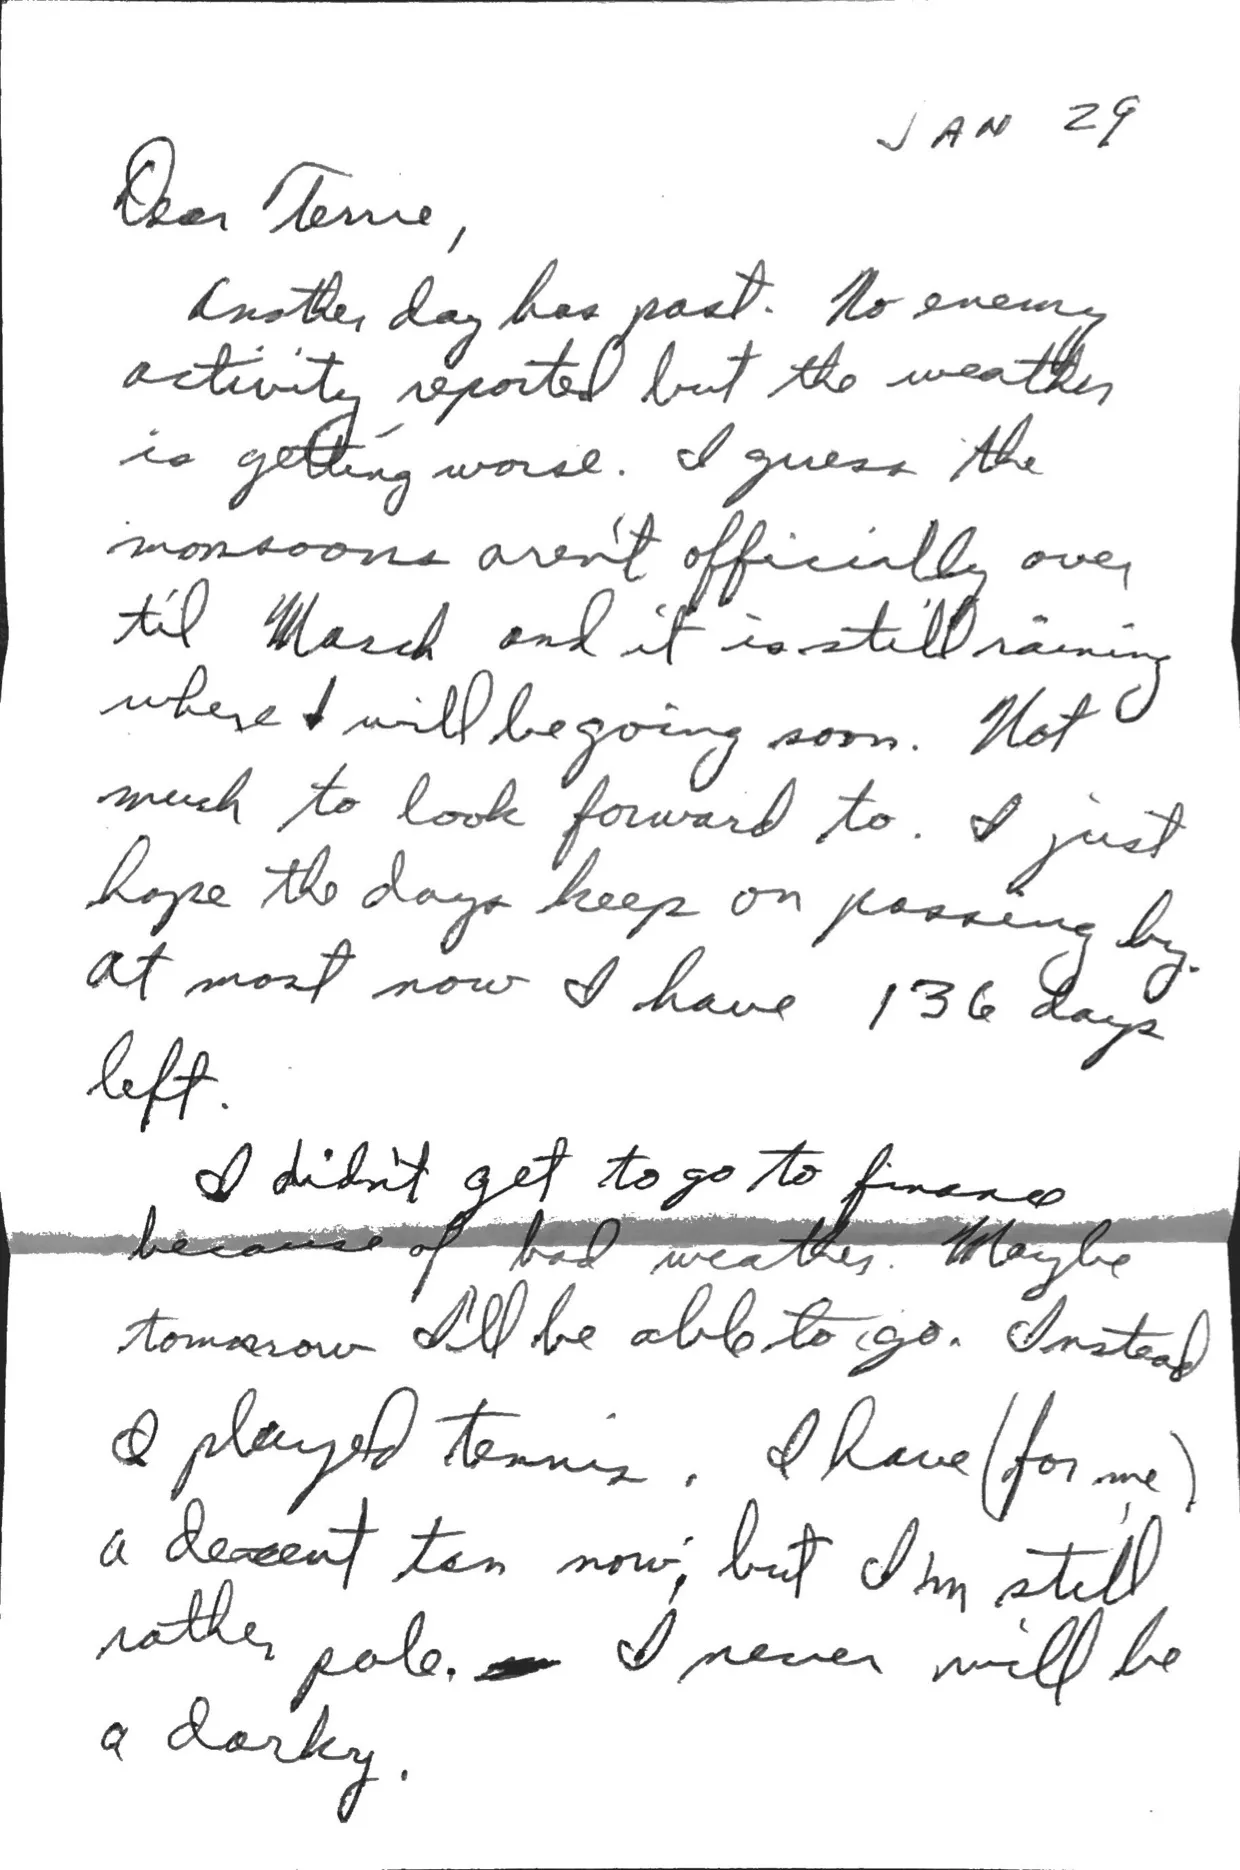 JAN 29
Dear Terrie,
Another day has past. No enemy
activity reported but the weather
is getting worse. I guess the
monsoons aren't officially over
til March and it is still raining
where I will be going soon. Not
much to look forward to. I just
hope the days keep on passing by.
At most now I have 136 days
left.
I didn't get to go to finance
because of bad weather. Maybe
tomorrow I'll be able to go. Instead
I played tennis. I have (for me)
a decent tan now; but I'm still
rather pale. I never will be
a darky.